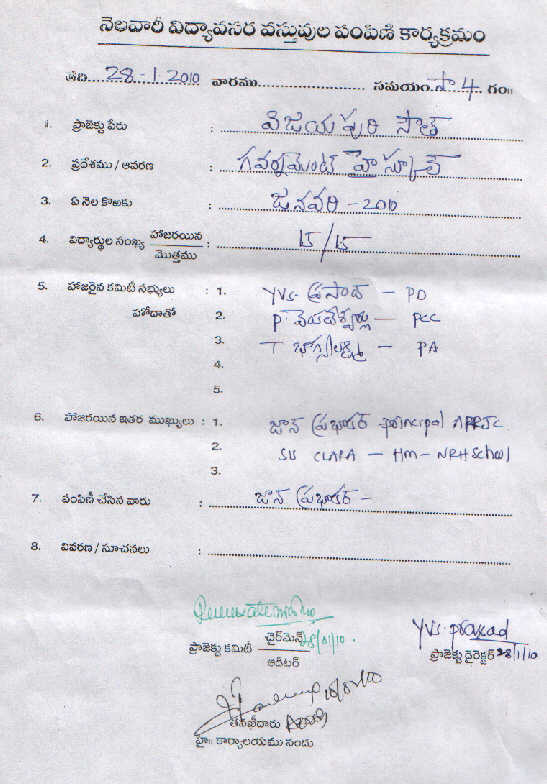 నెలవారీ విద్యావసర వస్తువుల పంపిణి కార్యక్రమం
తేది 28-1-2010 వారము సమయం సా 4 గం॥
1. ప్రాజెక్టు పేరు : విజయపురి సౌత్
2. ప్రదేశము / ఆవరణ : గవర్నమెంట్ హైస్కూల్
3. ఏ నెల కొఱకు : జనవరి - 2010
4. విద్యార్థుల సంఖ్య హాజరయిన / మొత్తము : 15/15
5. హాజరైన కమిటీ సభ్యులు : 1. YVS ప్రసాద్ - PD
హోదాతో 2. P. వెంకటేశ్వర్లు - PCC
3. T భాగ్యలక్ష్మి - PA
4.
5.
6. హాజరయిన ఇతర ముఖ్యులు : 1. జాన్ ప్రభాకర్ principal APRJC
2. SU CLARA - Hm - NRH School
3.
7. పంపిణీ చేసిన వారు : జాన్ ప్రభాకర్ -
8. వివరణ / సూచనలు :
ప్రాజెక్టు కమిటీ చైర్‌మెన్ / ఆడిటర్ 28/01/10.
YVS prasad
ప్రాజెక్టు డైరెక్టర్ 28/1/10
తనిఖీదారు
హై॥ కార్యాలయము నందు